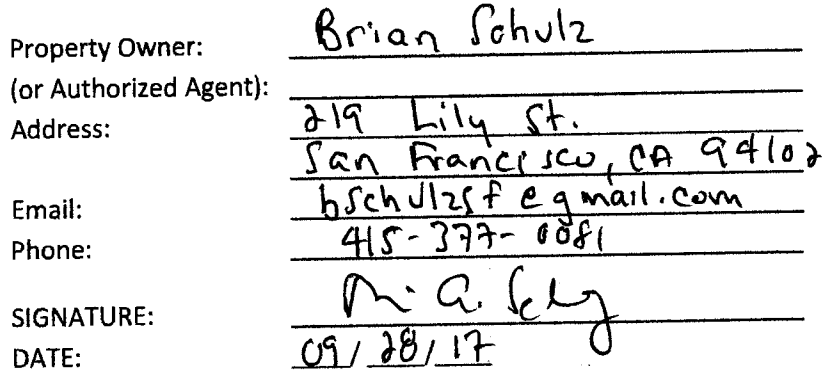 Property Owner: Brian Schulz
(or Authorized Agent):
Address: 219 Lily St.
San Francisco, CA 94102
Email: bschulzsf@gmail.com
Phone: 415-377-0081
SIGNATURE:
DATE: 09/28/17